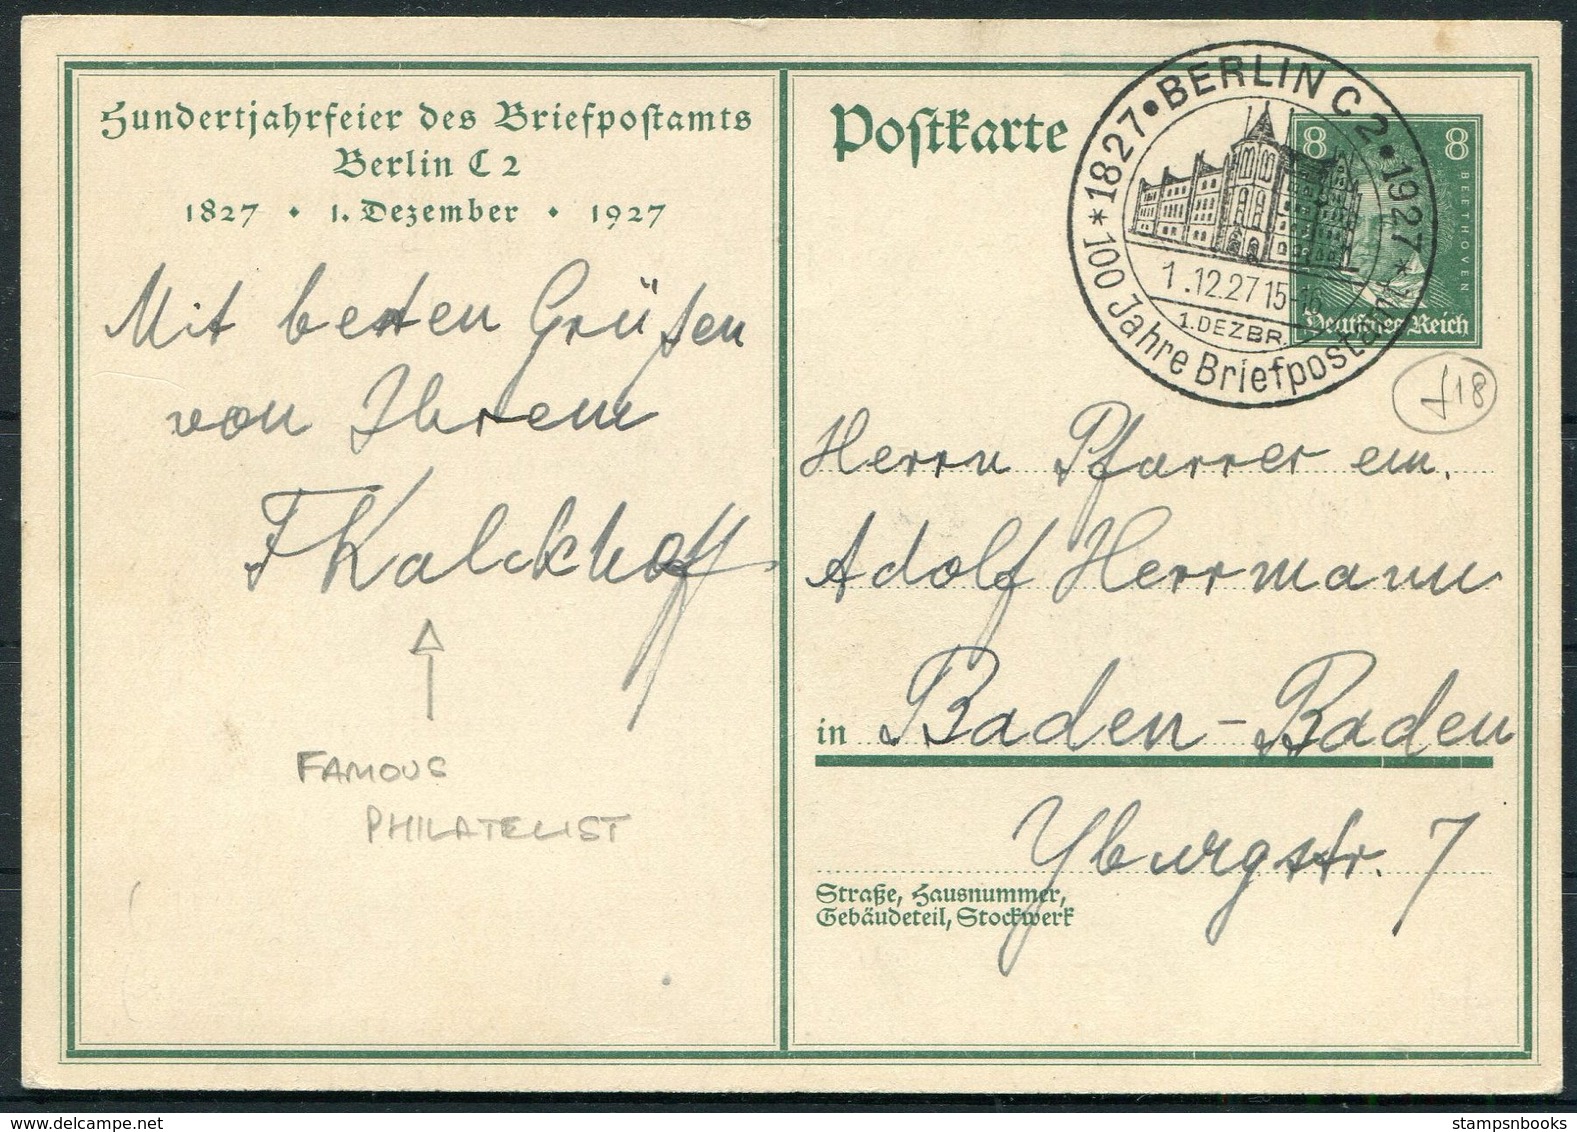 Hundertjahrfeier des Briefpostamts
Berlin C 2
1827 • 1. Dezember • 1927
Mit besten Grüßen
von Ihrem
F Kalckhoff
FAMOUS
PHILATELIST
Postkarte
* 1827 • BERLIN C 2 • 1927 *
1.12.27 15-16
1. DEZBR.
100 Jahre Briefpostamt
8 8
BEETHOVEN
Deutsches Reich
£18
Herrn Pfarrer em.
Adolf Herrmann
in Baden-Baden
Yburgstr. 7
Straße, Hausnummer,
Gebäudeteil, Stockwerk
stampsnbooks